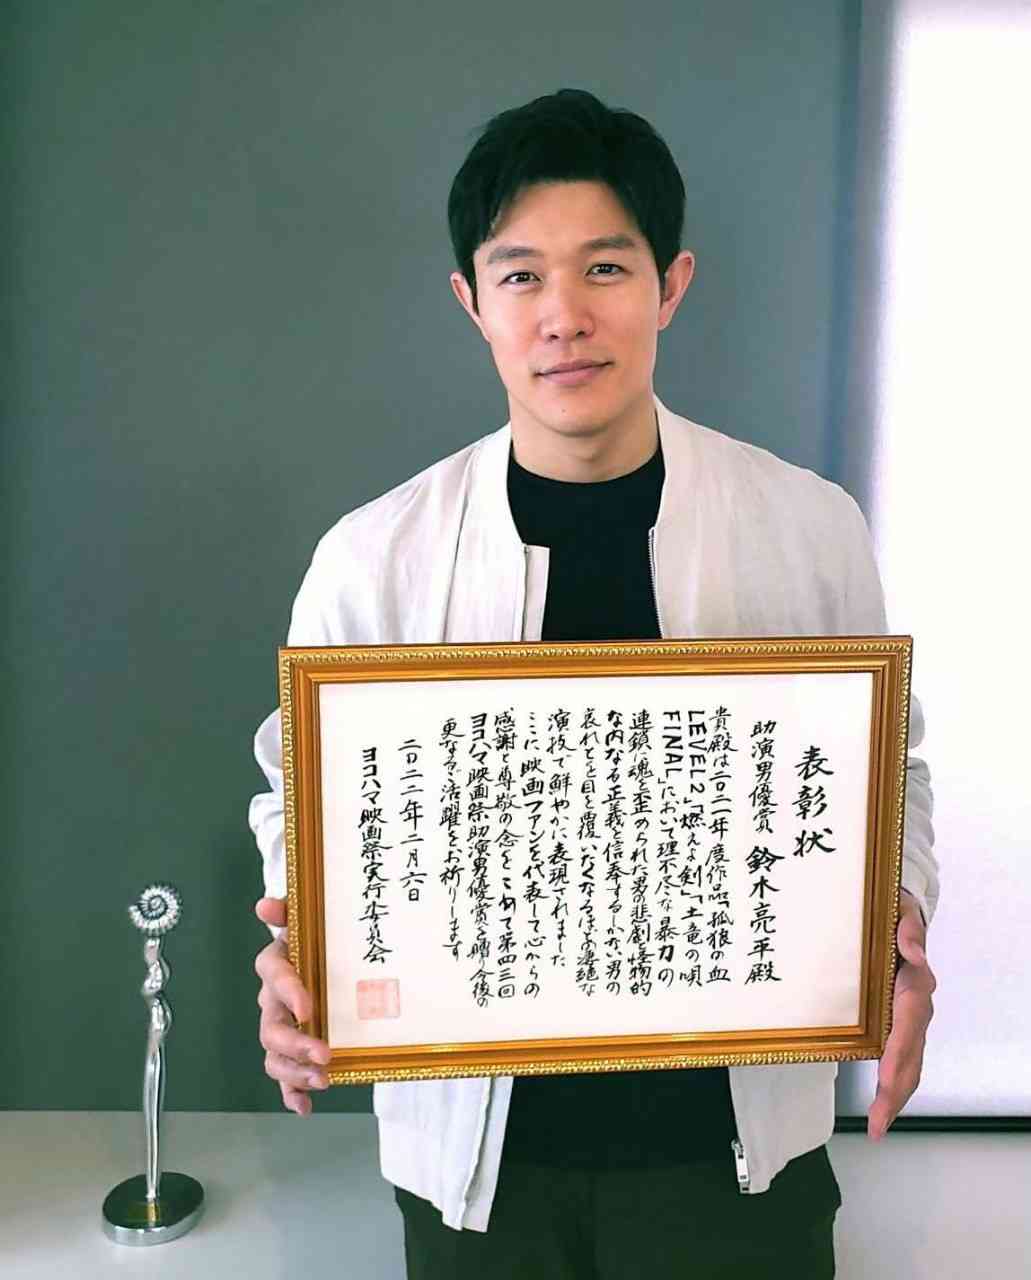 表彰状
助演男優賞 鈴木亮平殿
貴殿は二〇二一年度作品「孤狼の血
LEVEL2」「燃えよ剣」「土竜の唄
FINAL」において理不尽な暴力の
連鎖に魂を歪められた男の悲劇を怪物的
な内なる正義を信奉するしかない男の
哀れさを目を覆いたくなるほどの凄絶な
演技で鮮やかに表現されました
ここに映画ファンを代表して心からの
感謝と尊敬の念をこめて第四三回
ヨコハマ映画祭助演男優賞を贈り今後の
更なるご活躍をお祈りします
二〇二二年二月六日
ヨコハマ映画祭実行委員会